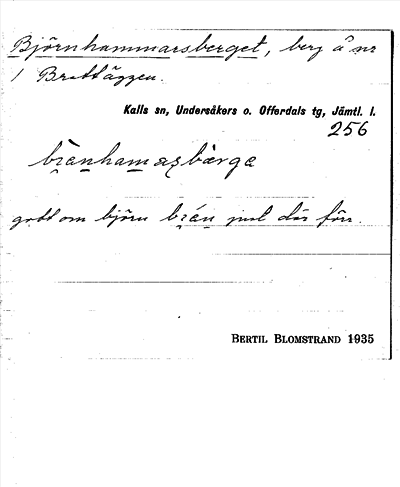 Björnhammarsberget, berg å nr
1 Brattäggen.
Kalls sn, Undersåkers o. Offerdals tg, Jämtl. l.
256
bı̀ạ̈nhamaṣbàrga
gott om björn bı̣án just där förr.
BERTIL BLOMSTRAND 1935